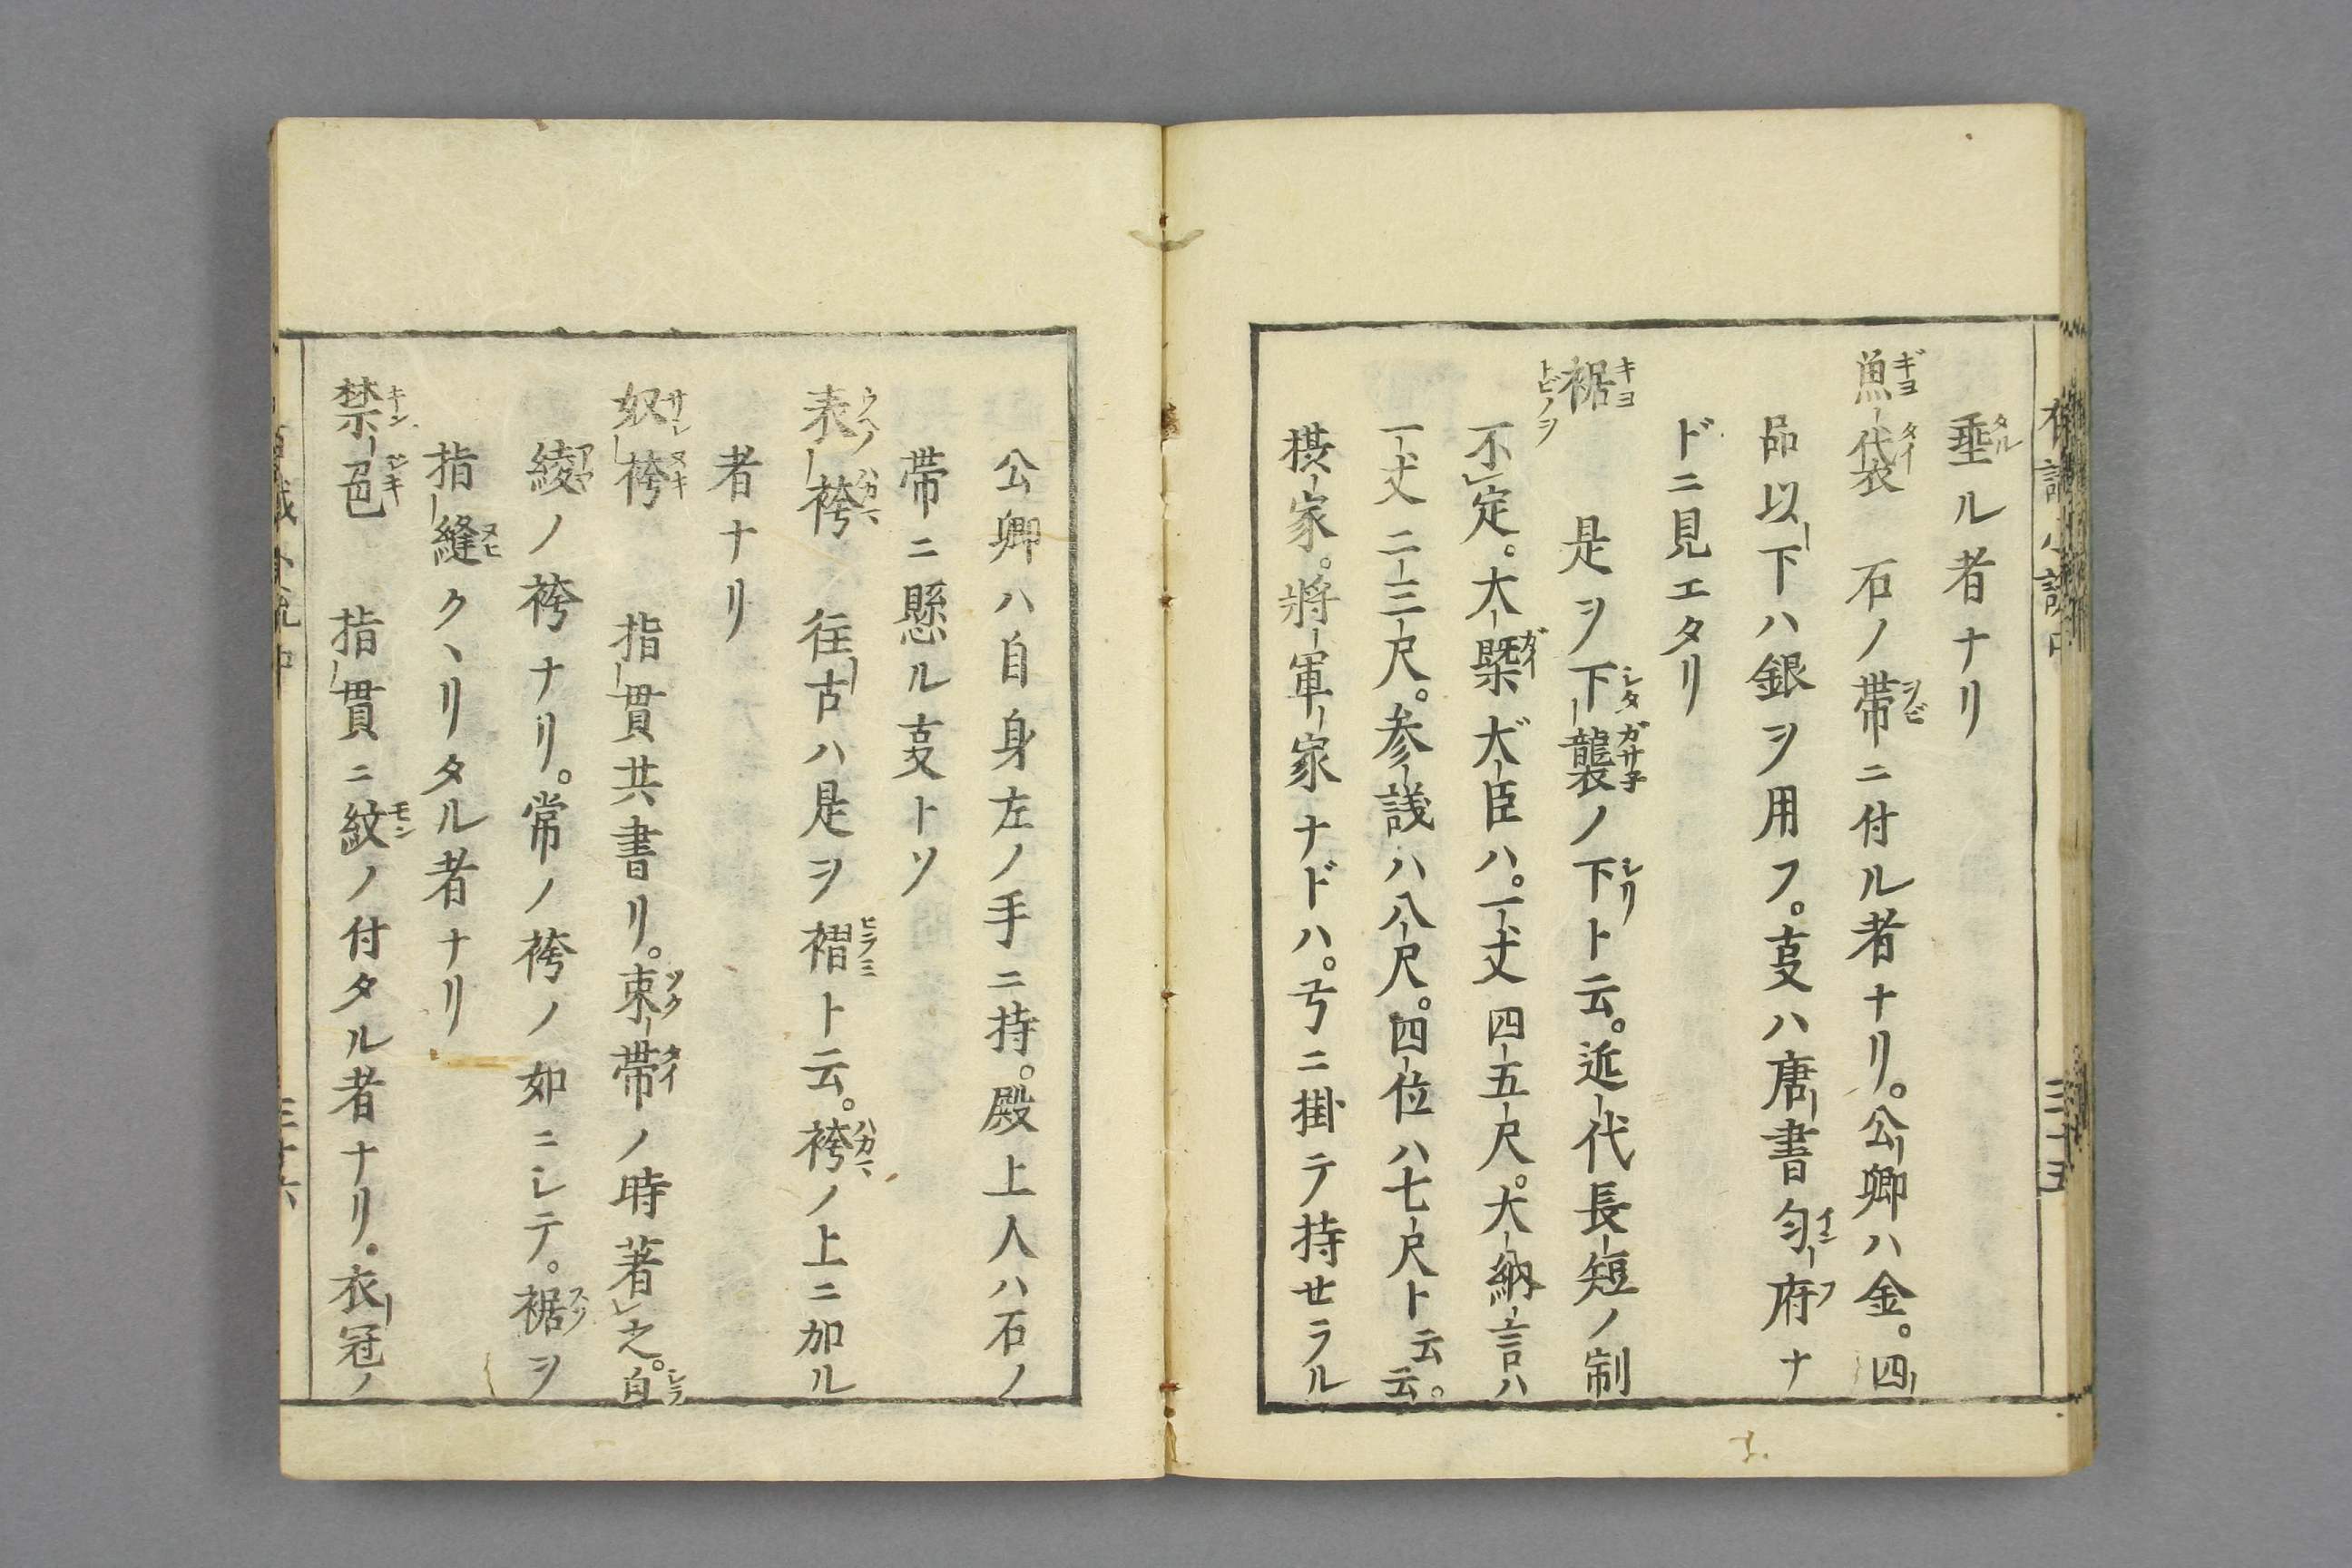 垂ル者ナリ
魚袋　石ノ帯ニ付ル者ナリ。公卿ハ金。四
品以下ハ銀ヲ用フ。叓ハ唐書匀府ナ
ドニ見エタリ
裾　是ヲ下襲ノ下ト云。近代長短ノ制
不定。大槩大臣ハ。一丈四五尺。大納言ハ
一丈二三尺。参議ハ八尺。四位ハ七尺ト云云。
摸家。将軍家ナドハ。弓ニ掛テ持セラル
公卿ハ自身左ノ手ニ持。殿上人ハ石ノ
帯ニ懸ル叓トソ
表袴　往古ハ是ヲ褶ト云。袴ノ上ニ加ル
者ナリ
奴袴　指貫共書リ。束帯ノ時著之。白
綾ノ袴ナリ。常ノ袴ノ如ニシテ。裾ヲ
指縫クヽリタル者ナリ
禁色　指貫ニ紋ノ付タル者ナリ。衣冠ノ